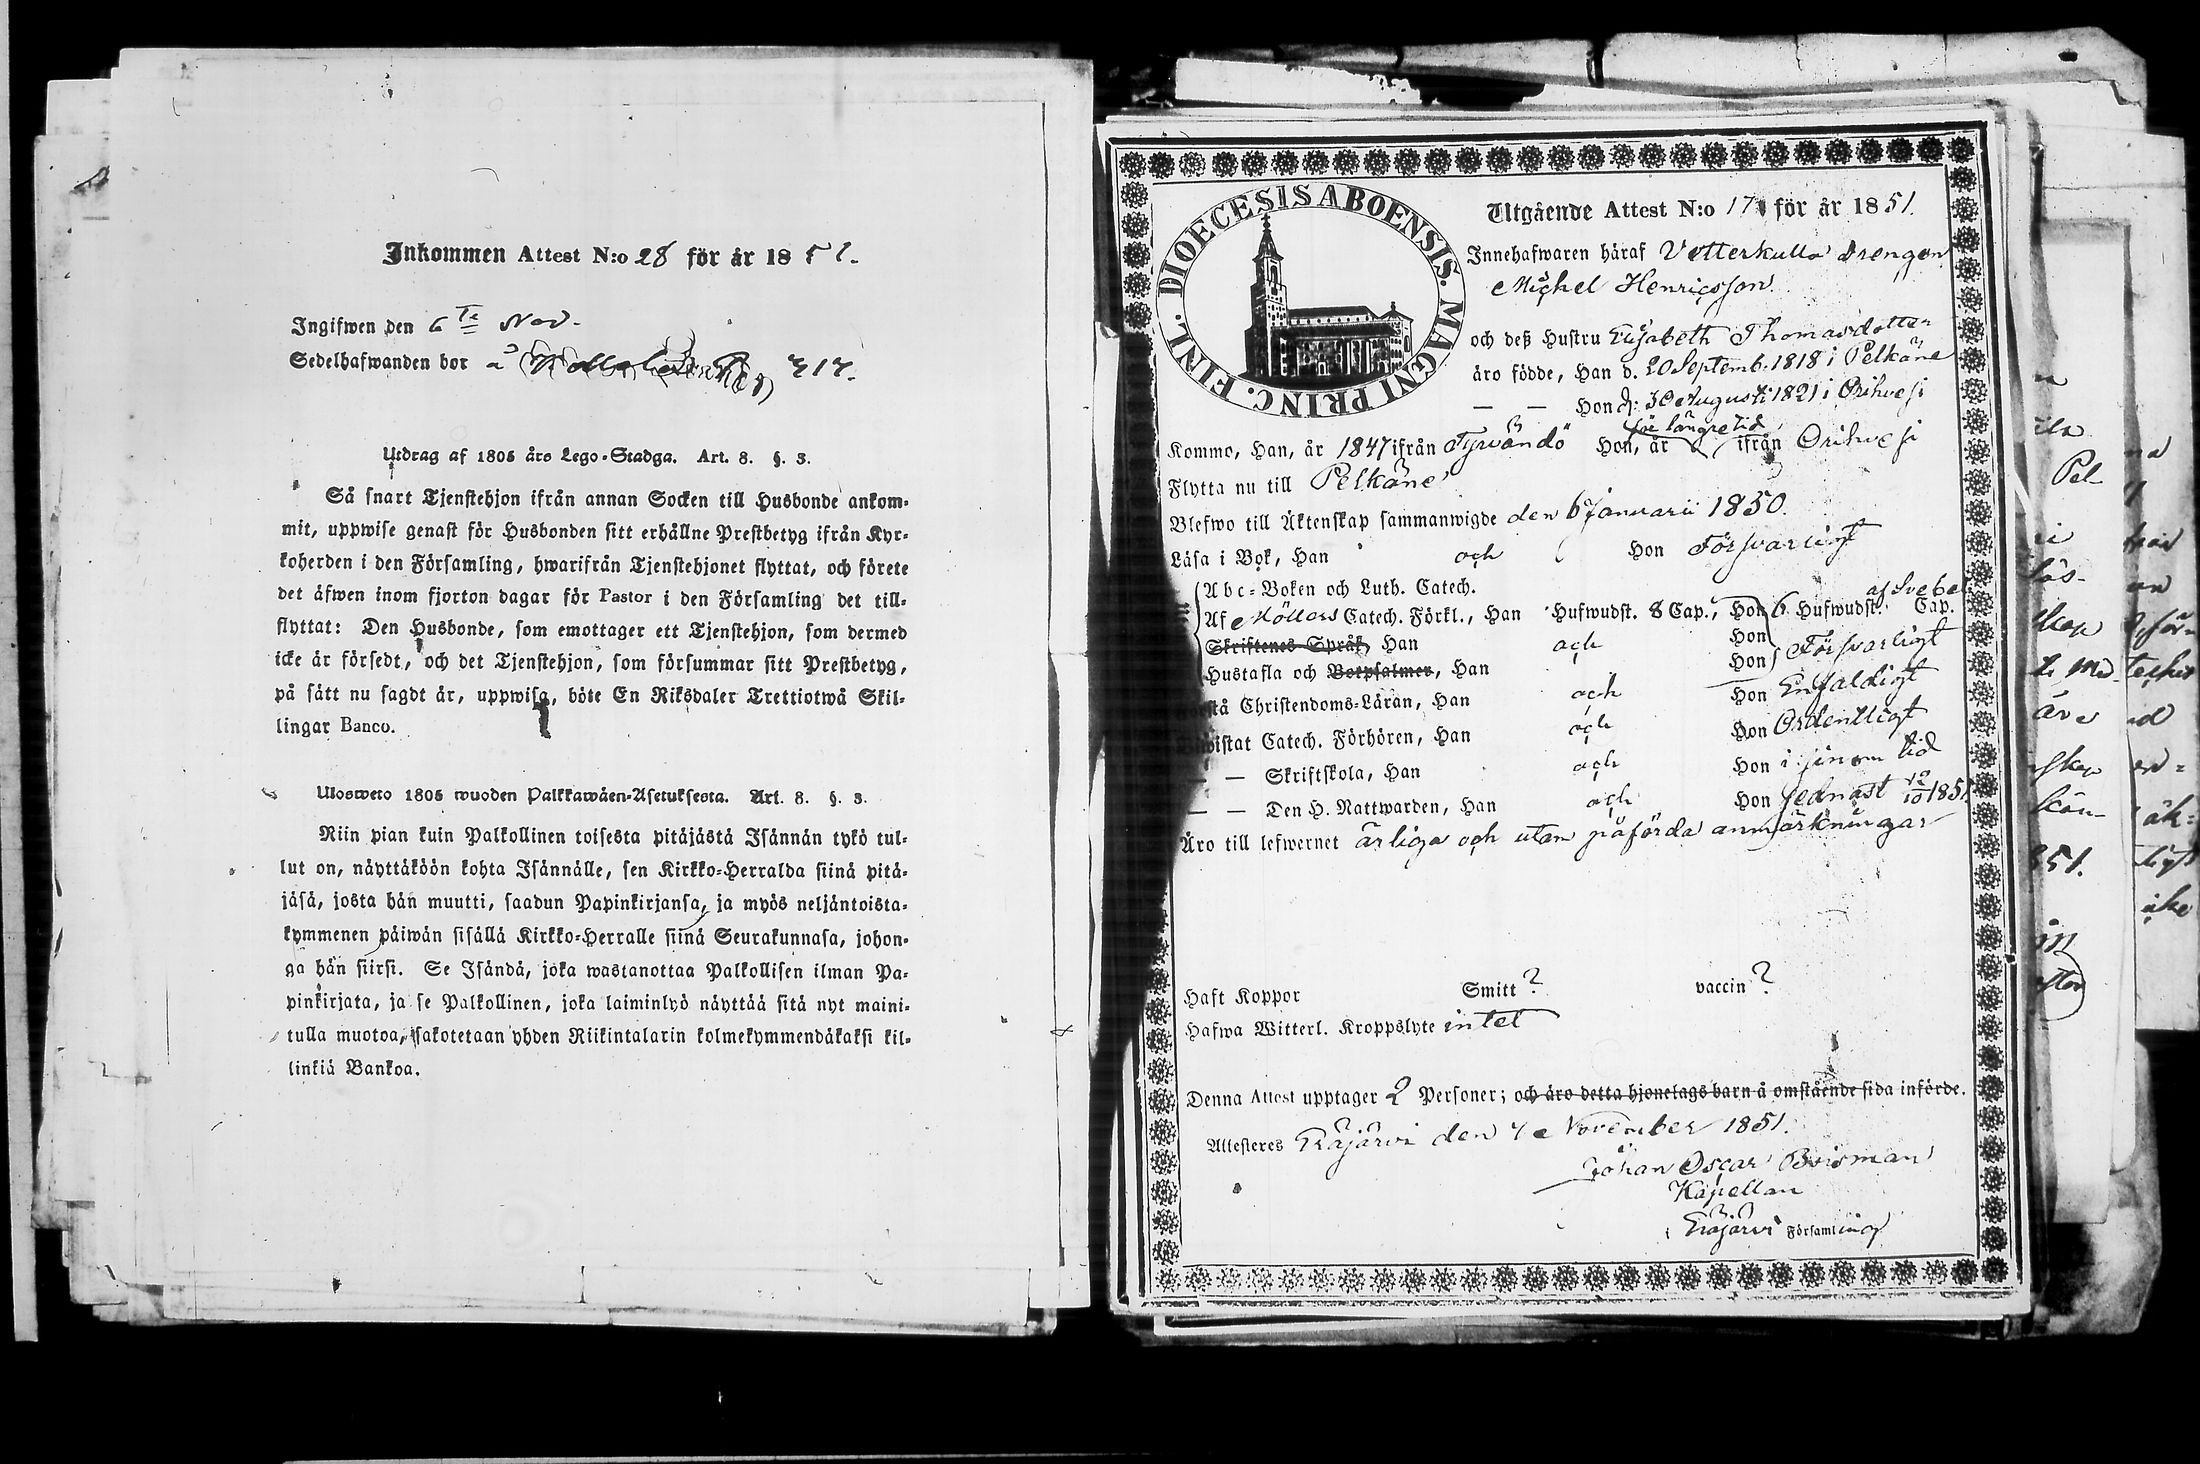 Inkommen Attest N:o 28 för år 1851.
Ingifwen den 6 te Nov.
Sedelhafwanden bor å 417.
Utdrag af 1805 års Lego-Stadga. Art. 8. §. 3.
Så snart Tjenstehjon ifrån annan Socken till Husbonde ankom-
mit, uppwise genast för Husbonden sitt erhållne Prestbetyg ifrån Kyr-
koherden i den Församling, hwarifrån Tjenstehjonet flyttat, och förete
det äfwen inom fjorton dagar för Pastor i den Församling det till-
flyttat: Den Husbonde, som emottager ett Tjenstehjon, som dermed
icke är försedt, och det Tjenstehjon, som försummar sitt Prestbetyg,
på sätt nu sagdt är, uppwisa, böte En Riksdaler Trettiotwå Skil-
lingar Banco.
Ulosweto 1805 wuoden Palkkawäen-Asetuksesta. Art. 8. §. 3.
Niin pian kuin Palkollinen toisesta pitäjästä Isännän tykö tul-
lut on, näyttäköön kohta Isännälle, sen Kirkko-Herralda siinä pitä-
jäsä, josta hän muutti, saadun Papinkirjansa, ja myös neljäntoista-
kymmenen päiwän sisällä Kirkko-Herralle siinä Seurakunnasa, johon-
ga hän siirsi. Se Isändä, joka wastanottaa Palkollisen ilman Pa-
pinkirjata, ja se Palkollinen, joka laiminlyö näyttää sitä nyt maini-
tulla muotoa, sakotetaan yhden Riikintalarin kolmekymmendäkaksi kil-
linkiä Bankoa.
DIOECESIS ABOENSIS. MAGNI PRINC. FINL.
Utgående Attest N:o 17 för år 1851.
Innehafwaren häraf Vetterkulla drengen
Michel Henricsson
och deß Hustru Elisabeth Thomasdotter
äro födde, Han d. 20 Septemb. 1818 i Pelkäne
— — Hon d: 30 Augusti 1821 i Orihvesi
för längre tid
Kommo, Han, år 1847 ifrån Tyrvändö Hon, år ifrån Orihvesi
Flytta nu till Pelkäne
Blefwo till Äktenskap sammanwigde den 6 Januarii 1850.
Läsa i Bok, Han och Hon Försvarligt
Abc-Boken och Luth. Catech.
af Svebel.
Af Möllers Catech. Förkl., Han Hufwudst. 8 Cap., Hon 6 Hufwudst. Cap.
Skriftenes Språk, Han och Hon
Hustafla och Botpsalmer, Han Hon Försvarligt
Christendoms-Läran, Han och Hon Enfaldigt
Catech. Förhören, Han och Hon Ordentligt
— — Skriftskola, Han och Hon i sinom tid
— — Den H. Nattwarden, Han och Hon sednast 12/10 1851.
Äro till lefwernet ärliga och utan påförda anmärkningar
Haft Koppor Smitt ? vaccin ?
Hafwa Witterl. Kroppslyte intet
Denna Attest upptager 2 Personer; och äro detta hjonelags barn å omstående sida införde.
Attesteres Eräjärvi den 4 e November 1851.
Johan Oscar
Kapellan
i Eräjärvi Församling
Pel
851.